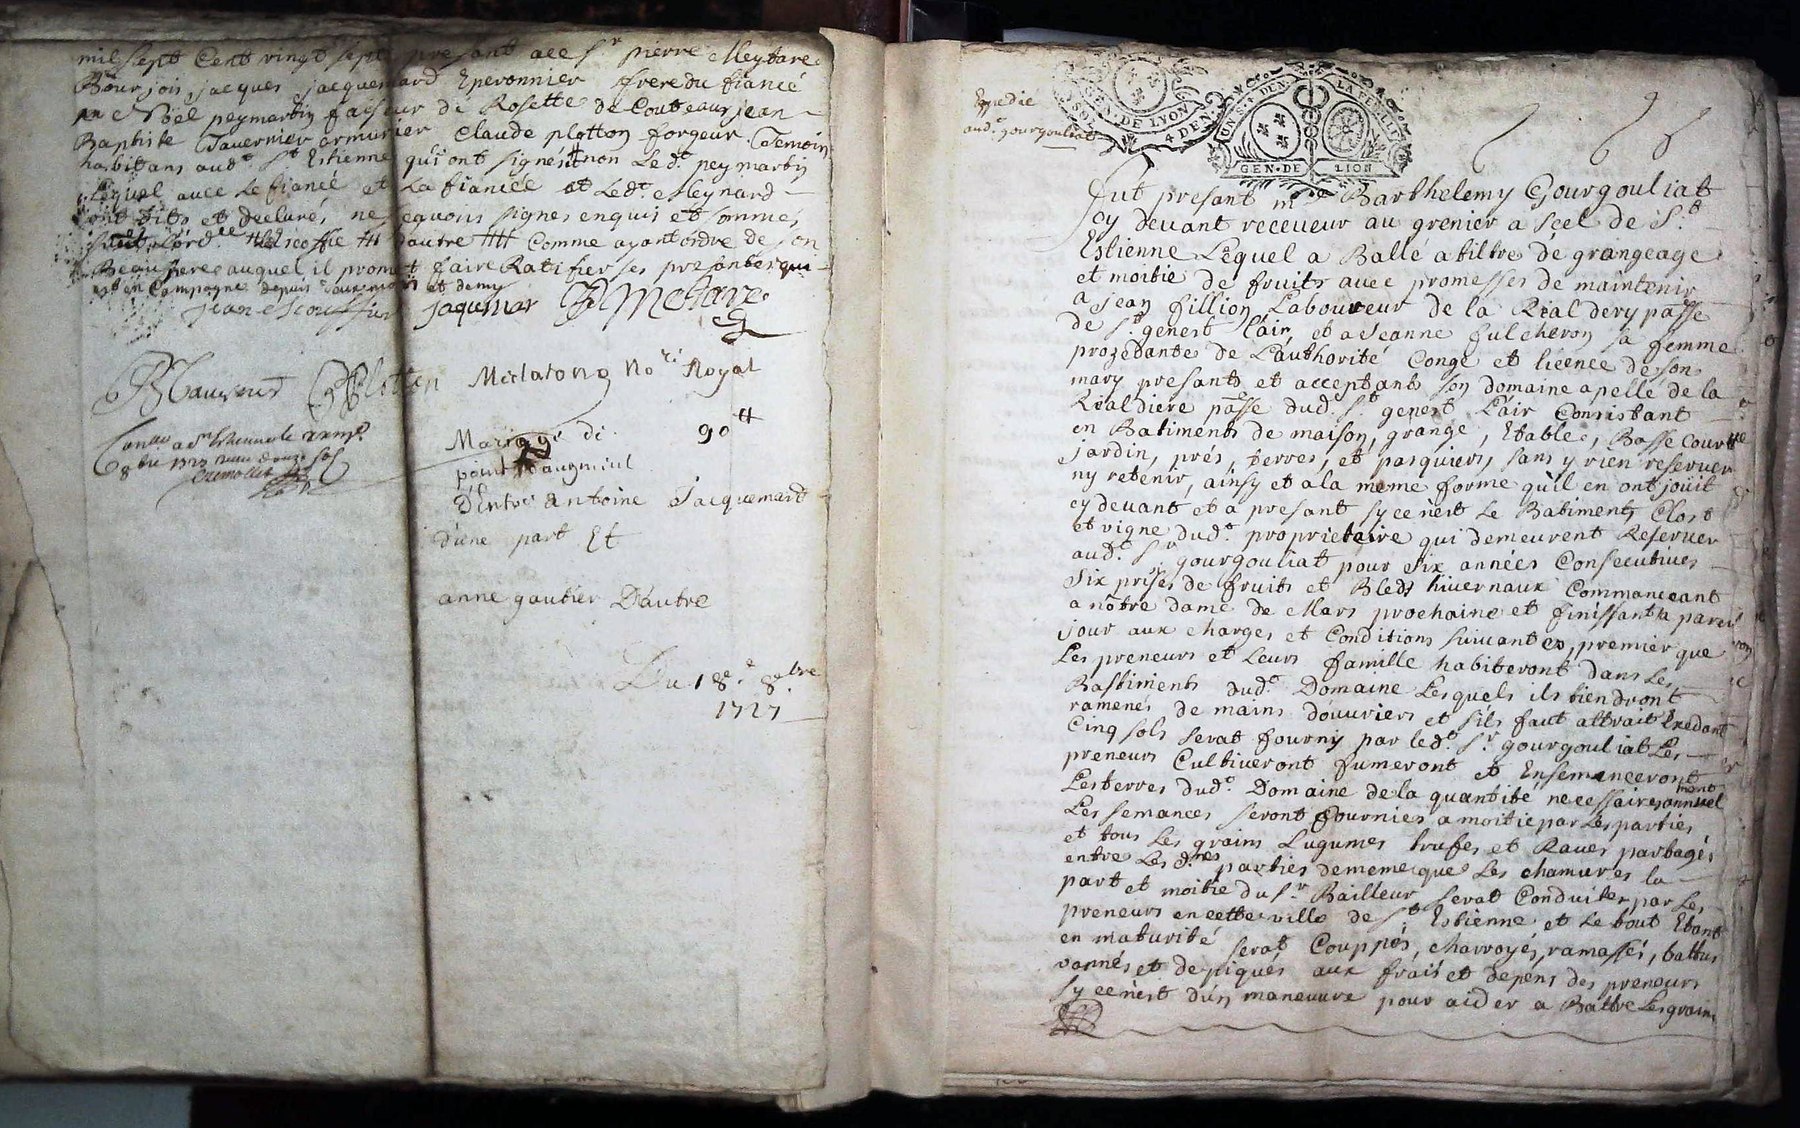 mil sept Cent vingt sept presant ace sr pierre Meytare
Bourjois, jacques jacquemard Eperonnier frere du fiancé
Noel peymartin faiseur de Rosette de Couteaux jean
Baptiste Tavernier armurier Claude plotton forgeur Temoin
habitans audt St Estienne qui ont signés non Ledt peymartin
Lequel avec Le fiancé et La fiancée et Ledt Meynard
ont dits et declarés ne sçavoir signer enquis et sommés
dautre comme ayant ordre de son
Beau frere auquel il promet faire Ratifier ses presantes qui
est en Campagne depuis et demy
jean jaqumar
Plotton Notre Royal
Mariage de 90tt
pour daugment
D'Entre antoine Jacquemard
d'une part Et
anne gautier D'autre
Du 18e 8bre
1727
Expedié
aud. gourgouliat
GEN. DE LYON
4 DEN.
GEN·DE LION
Fut presant mre Barthelemy Gourgouliat
cy devant receveur au grenier a scel de St
Estienne Lequel a Ballé a tiltre de grangeage
et moitie de fruits avec promesses de maintenir
a Jean fillion Laboureur de la Rialdery passe
de St genest l'air et a Jeanne fulcheron sa femme
prozedante de L'authorité Congé et licence de son
mary presants et acceptant son domaine apellé de la
Rialdiere passe dud. St genest L'air Consistant
en Batiments de maison, grange, Etable, Basse Court
jardin, prés, terres, et pasquiers, sans y rien reserver
ny retenir, ainsy et a la meme forme qu'il en ont joüit
cy devant et a presant sy ce n'est Le Batiment Clost
et vigne dudt proprietaire qui demeurent Reserver
audt Sr gourgouliat pour six années Consecutives
Six prises de fruits et Bleds hivernaux Commanceant
a nôtre dame de Mars prochaine et finissant a pareil
jour aux charges et Conditions suivantes, premier que
Les preneurs et Leurs famille habiteront dans Les
Bastiments dudt Domaine Lesquels ils tiendront
ramenés de mains d'ouvriers et s'ils faut attrait Exedant
Cinq sols serat fourny par ledt Sr gourgouliat Les
preneurs Cultiveront fumeront et Ensemanceront
Les terres dudt Domaine de la quantité necessaire annuelment
Les semances seront fournies a moitie par Les parties
et tous Les grains Lugumes trufes et Raves partagés
entre Les dnes parties de meme que Les chamures la
part et moitie du Sr Bailleur serat Conduite par Les
preneurs en cette ville de St Estienne et Le tout Etant
en maturité serat Couppés, charroyés, ramassés, battus
vannés et depiqués aux frais et depens des preneurs
sy ce n'est d'un maneuvre pour aider a Battre Les grains